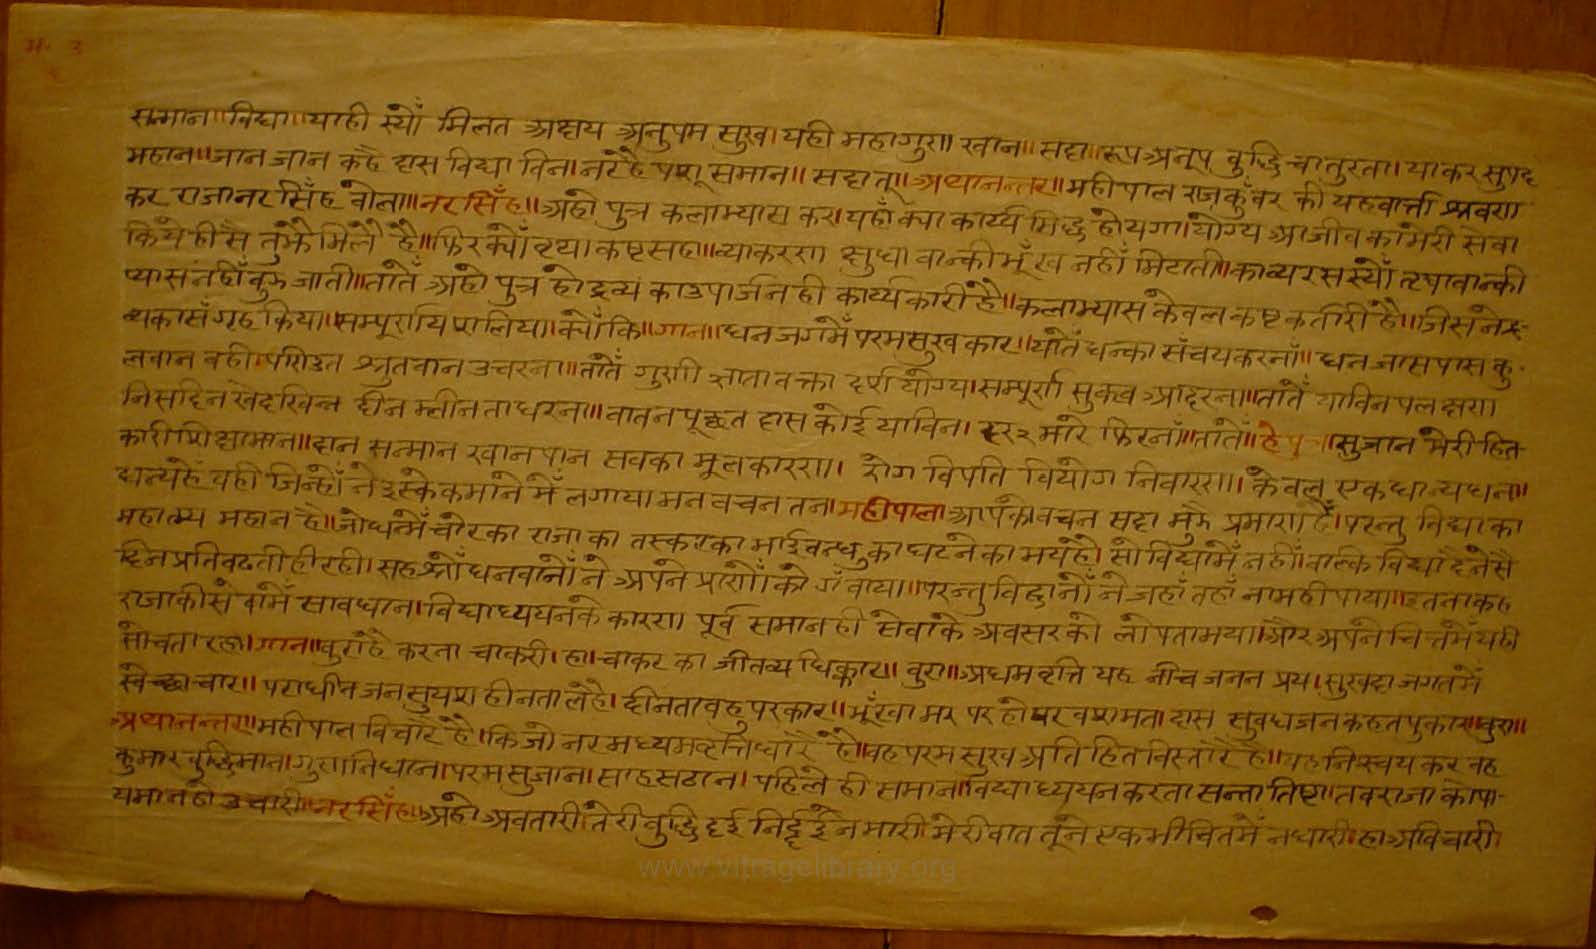 सन्मान॥विद्या॥याही स्यों मिलत अक्षय अनुपम सुख।यही महागुण खान॥ सदा॥रूप अनूप बुद्धि चातुरता। याकर सुपद
महान॥जान जान कहै दास विद्या विन।नर है पशू समान॥ सदा तू॥अथानन्तर॥महीपाल राजकुँवर की यह वार्त्ता श्रवण
कर राजा नरसिँह बोला॥नरसिँह॥अहो पुत्र कलाभ्यास कर।यहाँ क्या कार्य्य सिद्ध होयगा।योग्य आजीवका मेरी सेवा
किये ही सै तुझे मिलै है॥फिर क्यों वृथा कष्ट सह॥व्याकरण क्षुधावान्की भूँख नहीँ मिटाती॥काव्यरसस्योँ तृषावान्की
प्यास नहीँ बुझ जाती॥तातेँ अहो पुत्र हो द्रव्य का उपार्जन ही कार्य्यकारी है॥कलाभ्यास केवल कष्टकर्तारी है॥जिसने द्र-
व्य का सँग्रह किया।सम्पूर्ण यश लिया।क्योँ कि॥गान॥धन जगमेँ परम सुखकार॥यातेँ धन्का सँचय करनाँ॥धन जास पास कु-
लवान वही।पण्डित श्रुतवान उचरना॥तातेँ गुणी ज्ञाता वक्ता दर्श योग्य।सम्पूर्ण सुक्ख आदरना॥तातेँ याविन पल क्षण
निसदिन खेदखिन्न दीन मलीनता धरना॥बात न पूछत दास कोई याविन। दर २ मारे फिरनाँ॥तातेँ॥हे पुत्र॥सुजान मेरी हित-
कारी शिक्षा मान॥दान सन्मान खानपान सबका मूल कारण॥ रोग विपति वियोग निवारण॥ केवल एक धान्य धन॥
धन्य हैं वही जिन्होँ ने इस्के कमाने मेँ लगाया मन वचन तन॥महीपाल॥आपका वचन सदा मुझै प्रमाण है॥परन्तु विद्या का
महात्म्य महान है॥जो धनमेँ चोर का राजा का तस्कर का भाई बन्धु का घटने का भय है॥सो विद्या मेँ नहीँ॥बल्कि विद्या दैनेसै
दिन प्रति बढती ही रही॥सहस्रोँ धनवानोँ ने अपने प्राणोँ को गँवाया॥परन्तु विद्वानोँ ने जहाँ तहाँ नाम ही पाया॥इतना कह
राजा की सेवा मेँ सावधान।विद्याध्ययन के कारण पूर्व समान ही सेवा के अवसर को लोपता भया॥और अपने चित्त मेँ यही
सोचता रहा।गान॥बुरा है करना चाकरी।हा।चाकर का जीतव्य धिक्कार॥ बुरा॥अधम वृत्ति यह नीच जनन प्रय।सुखदा जगत मेँ
स्वेच्छाचार॥ पराधीन जन सुयश हीनता लहै। दीनता बहु परकार॥भूँखा मर पर हो पर वश मत।दास सुबुध जन कहत पुकार॥बुरा॥
अथानन्तर॥महीपाल विचारै है।कि जो नर मध्यमवृत्ति धारै है॥वह परम सुख अति हित विस्तारै है॥यह निश्चय कर वह
कुमार बुद्धिमान।गुण निधान।परम सुजान। साहसठान। पहिले ही समान।विद्याध्ययन करता सन्ता तिष्टा।तब राजा कोपा-
यमान हो उचारी॥नरसिँह॥अहो अवतारी।तेरी बुद्धि दई निर्दई ने मारी।मेरी बात तूने एक भी चितमेँ न धारी।हा अविचारी।
www.vitragelibrary.org